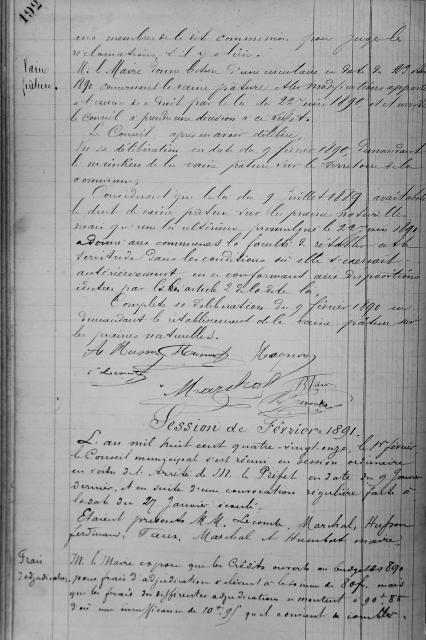 192
aux membres de la dite commission pour juger les
réclamations, s'il y a lieu.
Vaine
pâture.
M. le Maire donne lecture d'une circulaire en date du 23
1890 concernant la vaine pâture et les modifications apportées
à ce droit par la loi du 22 juin 1890 et invite
le conseil à prendre une décision à ce sujet.
Le Conseil, après en avoir délibéré,
Vu sa délibération en date du 9 février 1890, demandant
le maintien de la vaine pâture sur le territoire de la
commune;
Considérant que la loi du 9 juillet 1889 avait aboli
le droit de vaine pâture sur les prairies naturelles
mais que une loi ultérieure, promulguée le 22 juin 1890
a donné aux communes la faculté de rétablir cette
servitude dans les conditions où elle s'exerçait
antérieurement, en se conformant aux dispositions
édictées par l'article 2 de la dite loi,
Complète sa délibération du 9 février 1890 en
demandant le rétablissement de la vaine pâture sur
les prairies naturelles.
Lecomte
Marchal
Session de Février 1891.
L'an mil huit cent quatre-vingt onze, le 1er février
le Conseil municipal s'est réuni en session ordinaire
en vertu de l'Arrêté de M. le Préfet en date du 9 Janvier
dernier, et en suite d'une convocation régulière faite à
la date du 27 Janvier écoulé.
Etaient présents M.M. Lecomte, Marchal, Husson
Ferdinand, Marchal et Humbert maire.
Frais
d'adjudication,
M. le Maire expose que les Crédits ouverts au budget de 1890
pour frais d'adjudication s'élèvent à la somme de 80f, mais
que les frais des différentes adjudications se montent à 90f 95
d'où une insuffisance de 10f 95 qu'il convient de combler